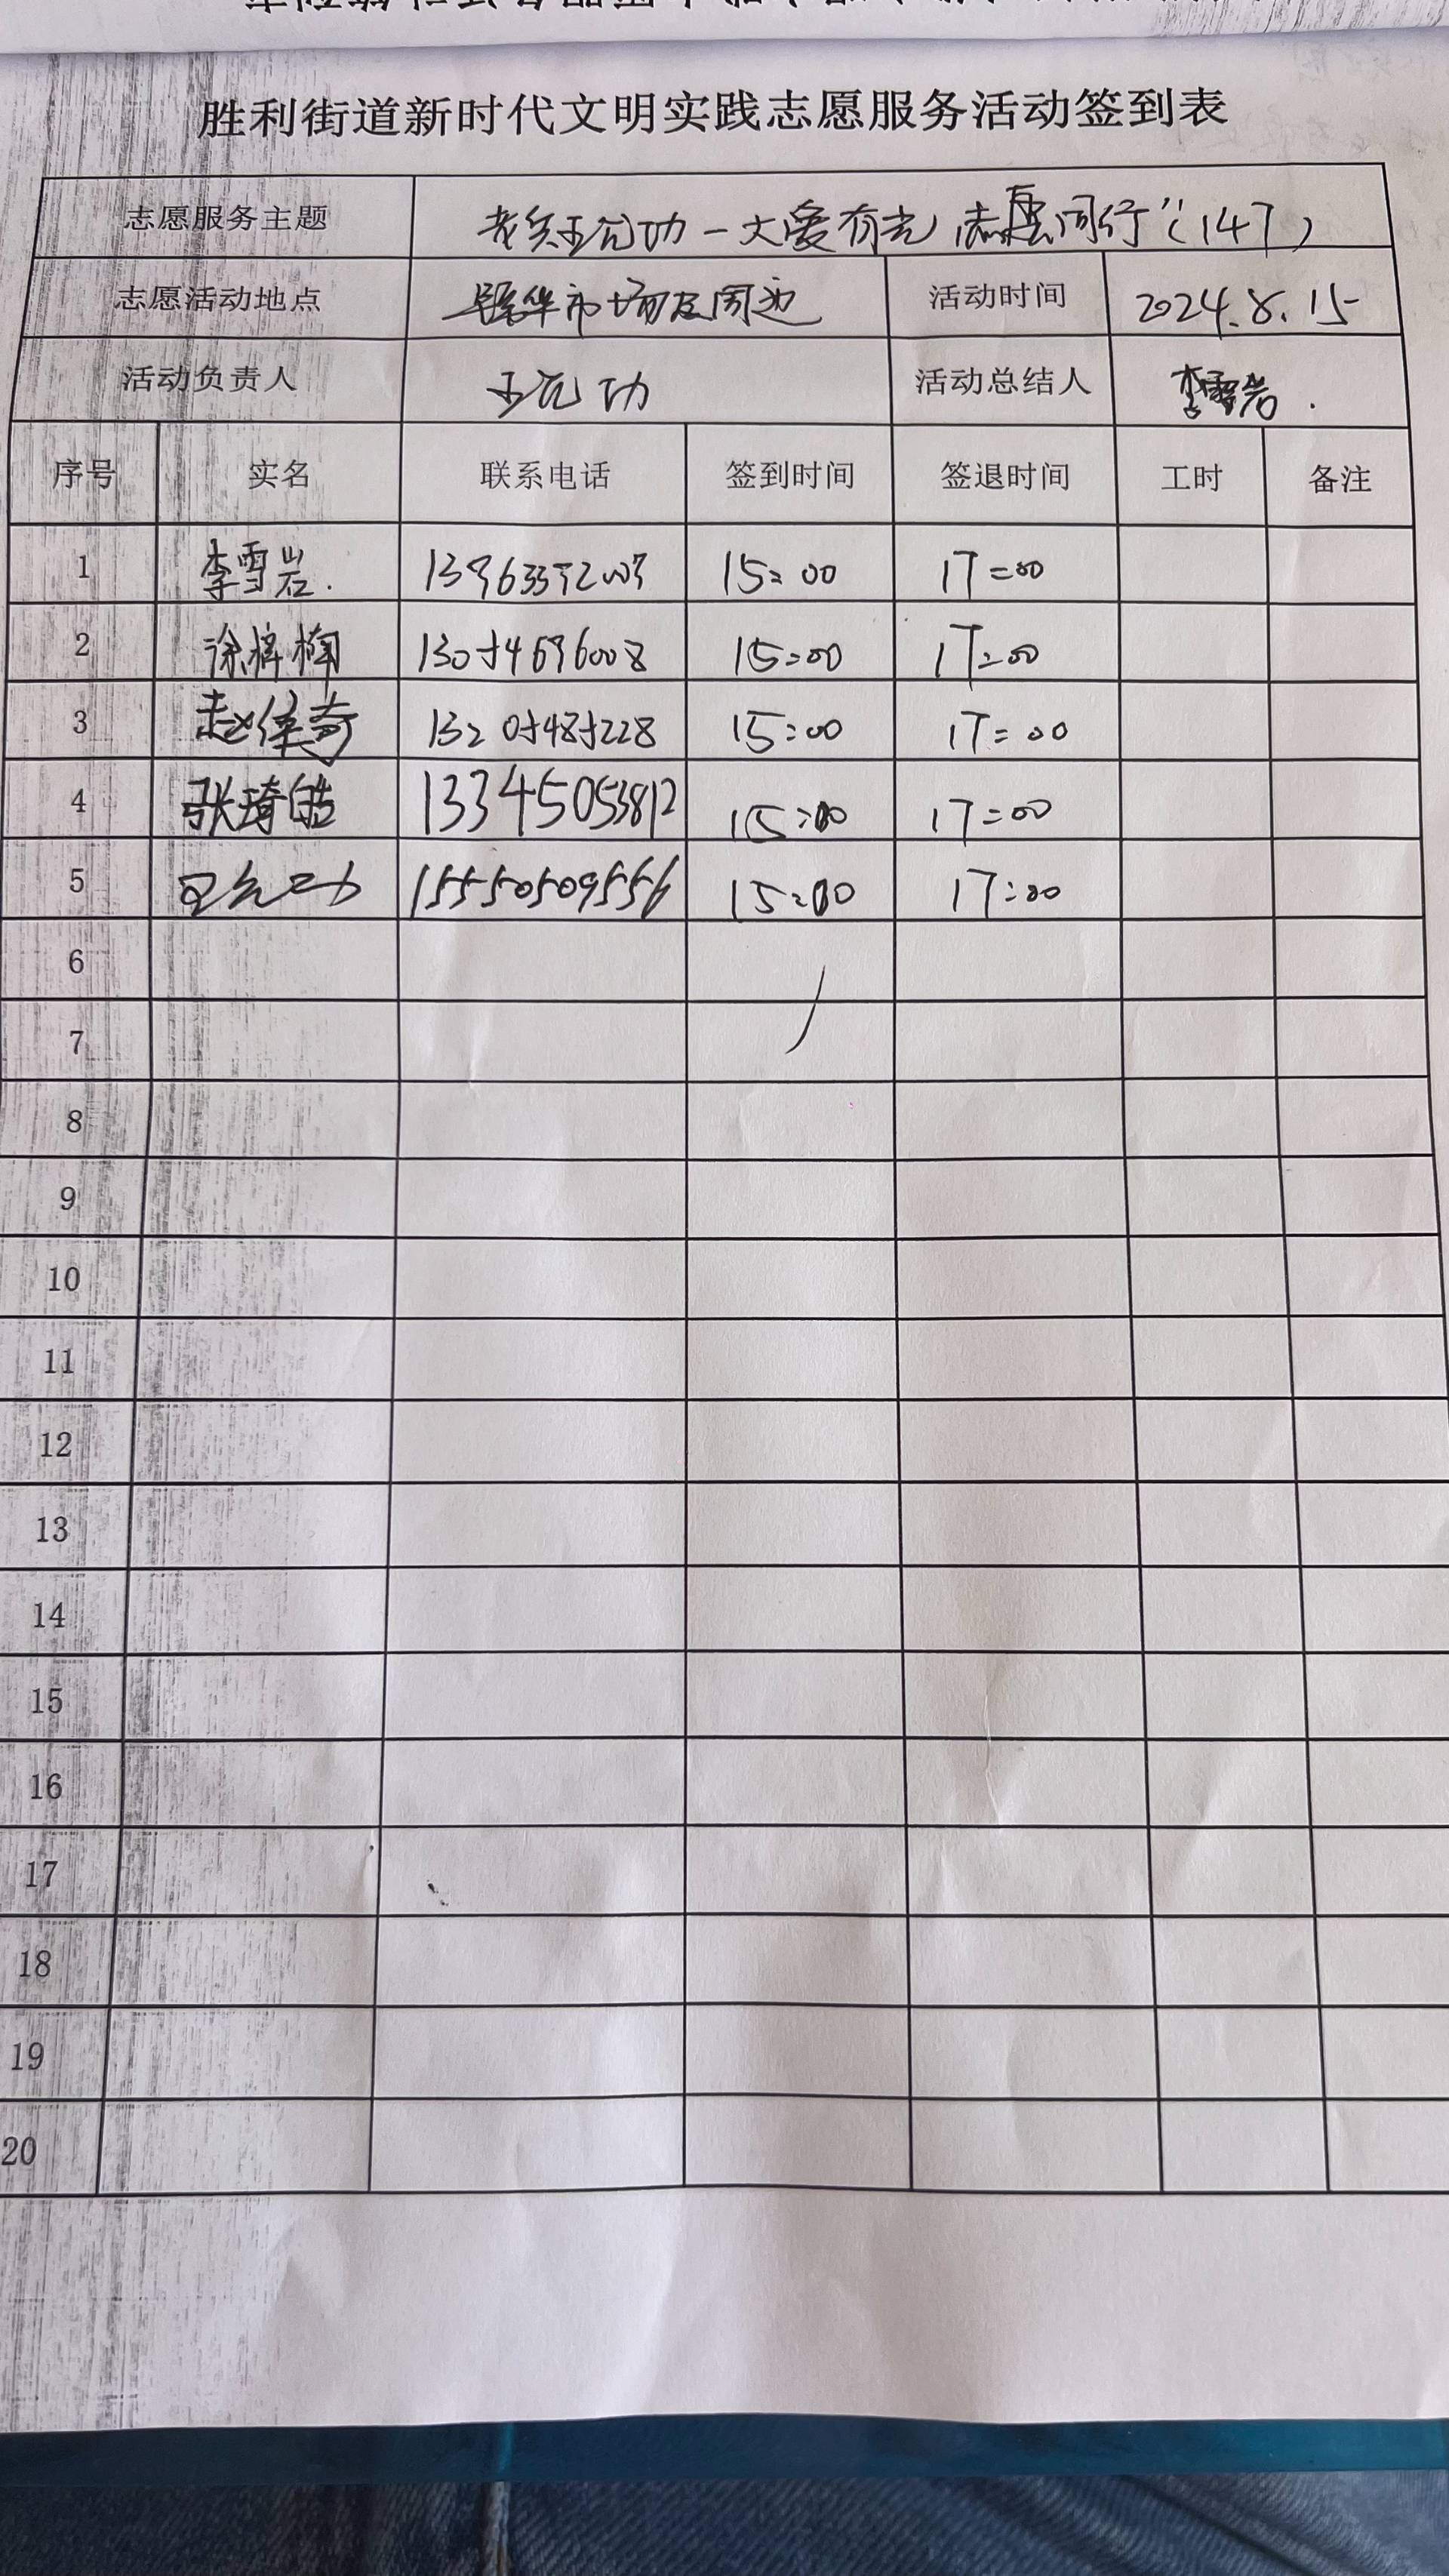 胜利街道新时代文明实践志愿服务活动签到表
志愿服务主题 老兵王允功一大爱有光 志愿同行"(147)
志愿活动地点 市场及周边 活动时间 2024.8.15
活动负责人 王允功 活动总结人 李雪岩.
序号 实名 联系电话 签到时间 签退时间 工时 备注
1 李雪岩. 15:00 17:00
2 徐梓楠 15:00 17:00
3 15:00 17:00
4 张琦皓 13345053812 15:00 17:00
5 王允功 15550509556 15:00 17:00
6
7
8
9
10
11
12
13
14
15
16
17
18
19
20